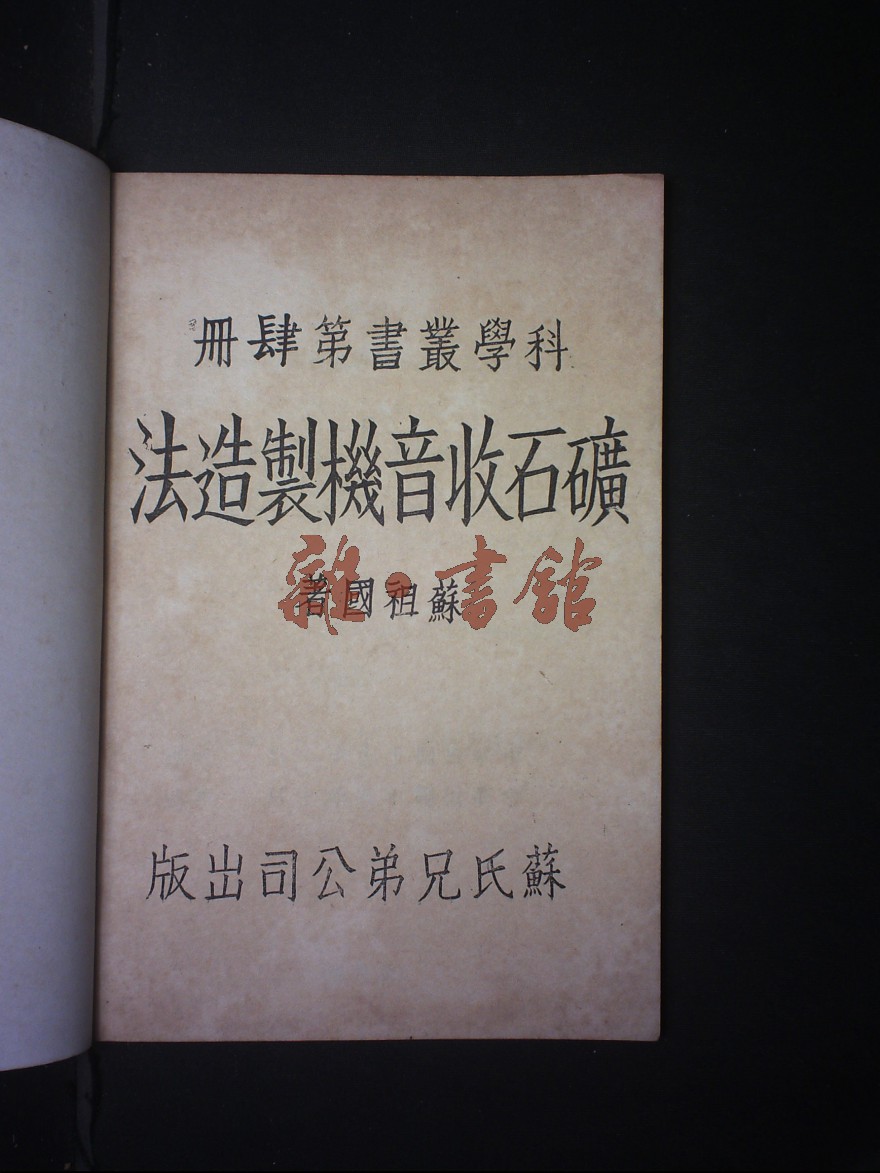 科學叢書第肆冊
礦石收音機製造法
蘇祖國著
雜·書館
蘇氏兄弟公司出版